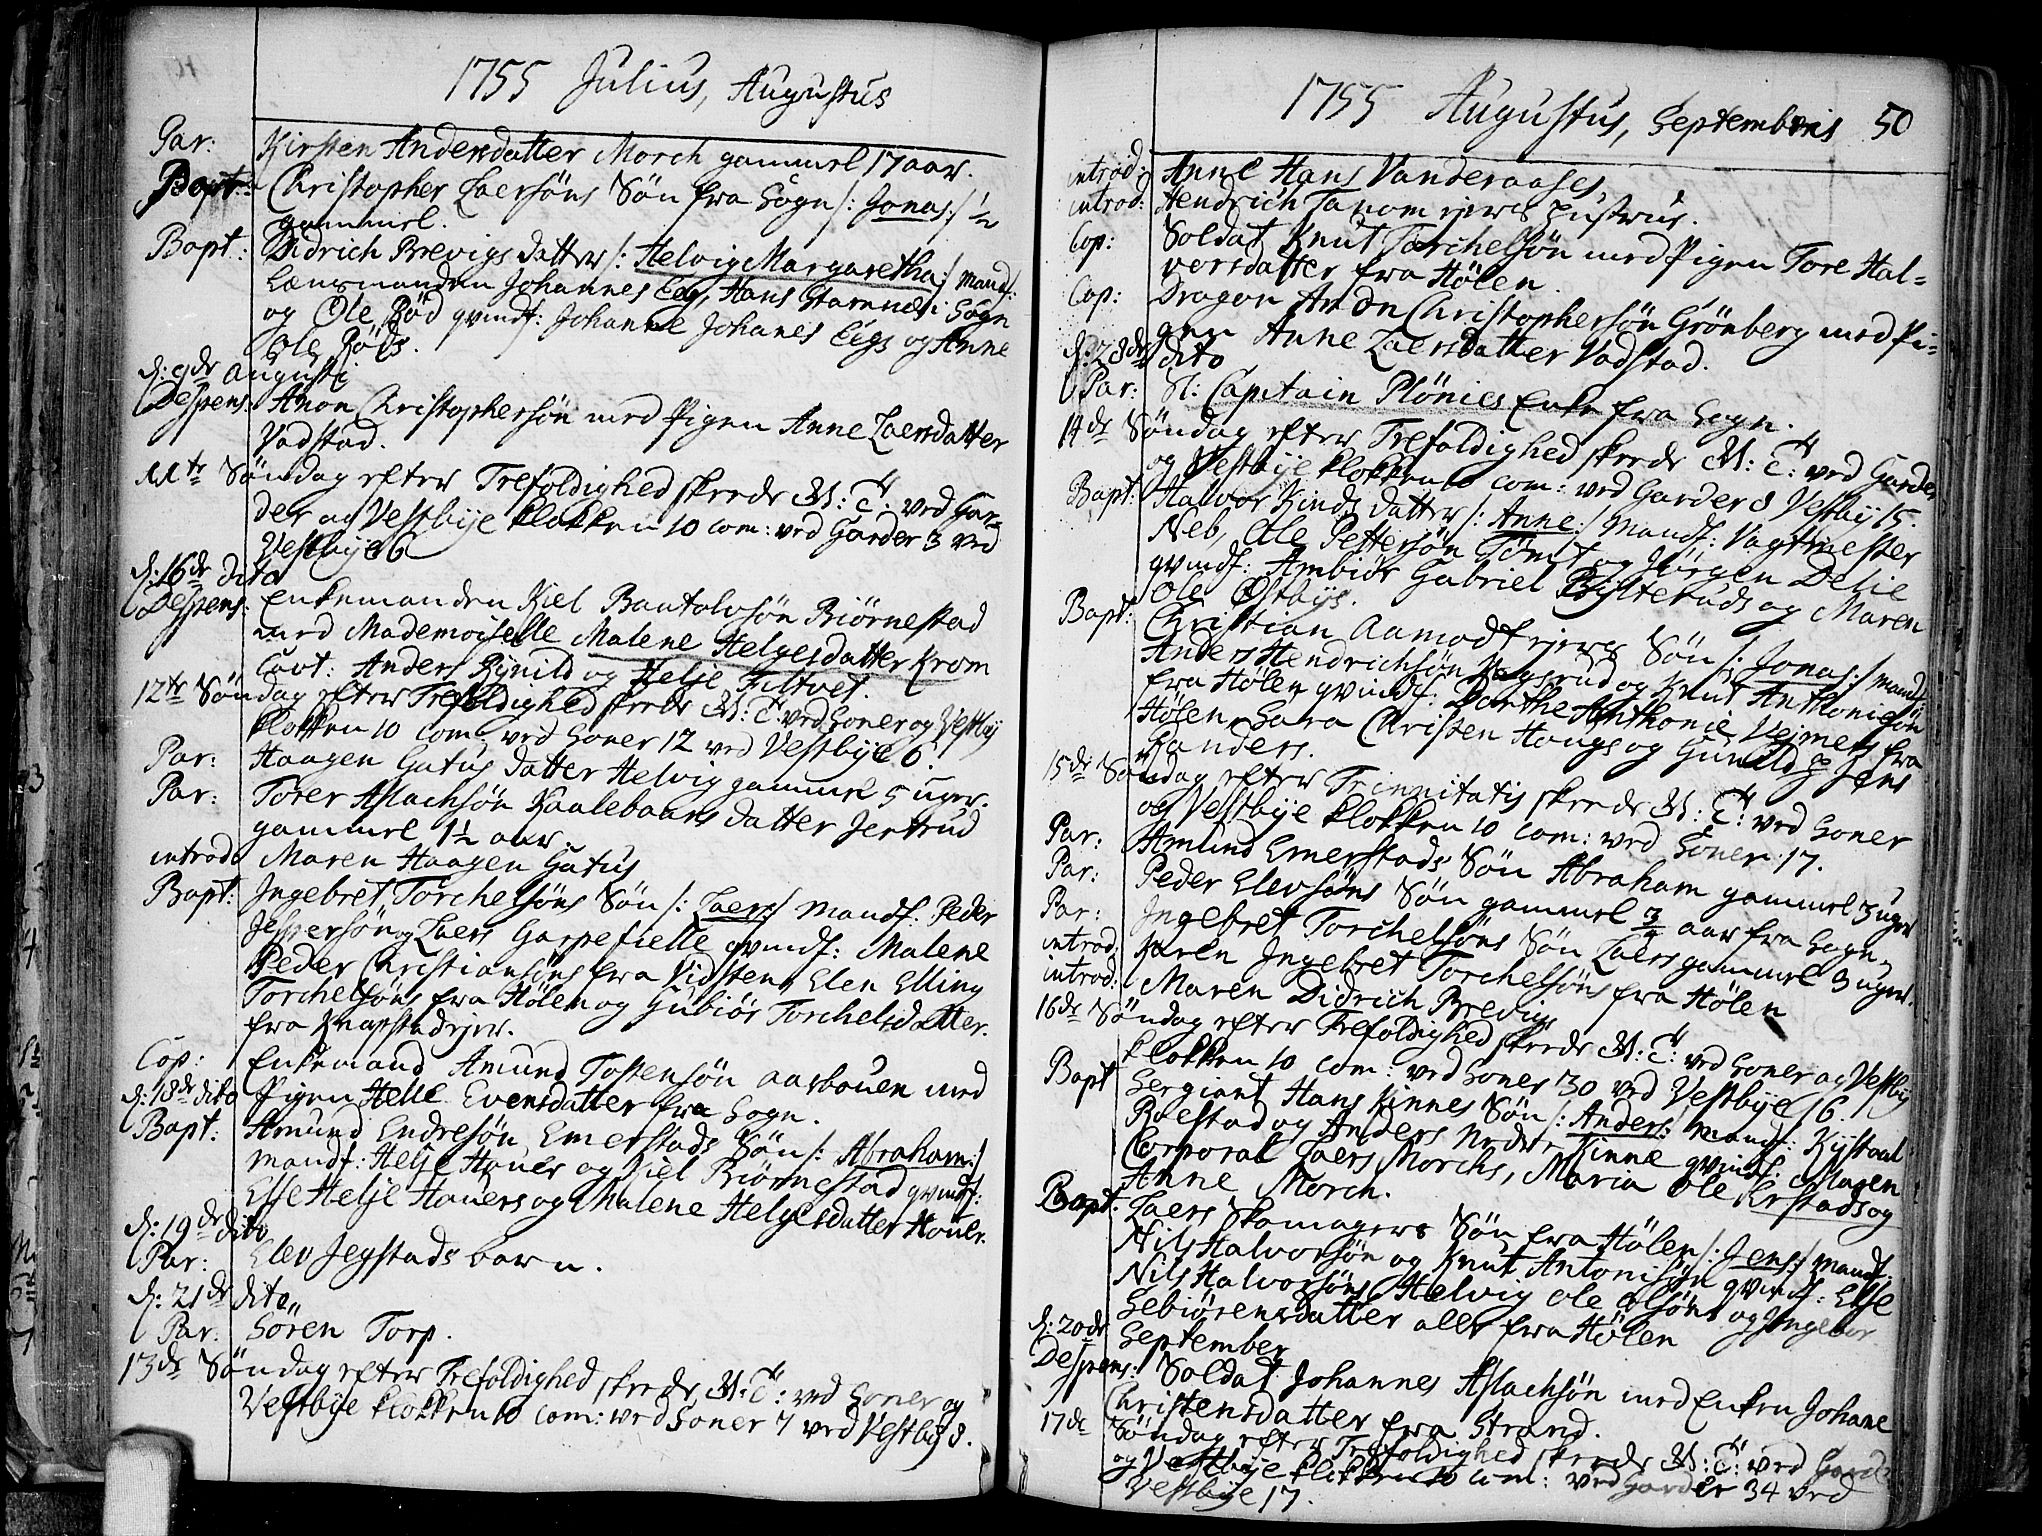 1755 Julius, Augustus
Par: Kirsten Andersdatter Morch gammel 17 aar.
Bapt: Christopher Laersöns Sön fra Sogn /: Jonas :/ ½
gammel.
Bapt: Didrich Brevigs datter /: Helvig Margaretha :/ mandf:
Lænsmanden Johannes Eeg, Hans Garnnes i Sogn
og Ole Röd qvindf: Johanne Johanes Eegs og Anne
Ole Röds.
d: 9de Augusti
Despens: Anon Christophersön med Pigen Anne Laersdatter
Vadstad.
11te Söndag efter Trefoldighed skeede M: T: ved Gar-
der og Vestbye klokken 10 com: ved Garder 3 ved
Vestbye 6
d: 16de dito
Despens: Enkemanden Kiel Bantolvsön Biörnestad
med Mademoiselle Malene Helgesdatter Krom
Cavt: Anders Rynild og Helje Filtvet.
12te Söndag efter Trefoldighed skeede M: T: ved Soner og Vestby
klokken 10 com: ved Soner 12 ved Vestbye 6.
Par: Haagen Gutus datter Helvig gammel 5 uger.
Par: Torer Aslachsön Kaalebaans datter Jertrud
gammel 1½ aar.
introd: Maren Haagen Gutus
Bapt: Jngebret Torchelsöns Sön /: Laers :/ mandf: Peder
Jespersön og Laers Garpefielle qvindf: Malene
Peder Christiansöns fra Vidsten, Elen Elling
Torchelsöns fra Hölen og Gubiör Torchelsdatter
fra Knapstadejer.
Cop: Enkemand Amund Tostensön Aarbouen med
d: 18de dito Pigen Helle Evensdatter fra Sogn.
Bapt: Amund Endresön Emerstads Sön /: Abraham :/
mandf: Helje Houer og Kiel Biörnestad qvindf:
Else Helje Houers og Malene Helgesdatter Houer.
d: 19de dito
Par: Elev Jegstads barn.
d: 21de dito
Par: Sören Torp.
13de Söndag efter Trefoldighed skeede M: T: ved Soner og
Vestbye klokken 10 com: ved Soner 7 ved Vestby 8.
1755 Augustus, Septembris 50
introd: Anne Hans Vanderaases
introd: Hendrich Tanom ejers Hustrue.
Cop: Soldat Knut Torchelsön med Pigen Tore Hal-
vorsdatter fra Hölen.
Cop: Dragon Anon Christophersön Grönberg med Pi-
gen Anne Laersdatter Vadstad.
d: 28de dito
Par: Sl: Capitain Plönies Enke fra Sogn.
14de Söndag efter Trefoldighed skeede M: T: ved Garder
og Vestbye klokken 10 com: ved Garder 8 Vestby 15.
Bapt: Halvor Kinds datter /: Anne :/ mandf: Vagtmester
Neb, Ole Pettersön Tömt og Jörgen Delie
qvindf: Ambiör Gabriel Rysteruds og Maren
Ole Östbys.
Bapt: Christian Aamodt ejers Sön /: Jonas :/ mandf:
Anders Hendrichsön Kagsrud og Knut Anthonisön
fra Hölen qvindf: Dorthe Anthonie Vejmers fra
Hölen, Sara Christen Hougs og Gunild Jens
Randers.
15de Söndag efter Trinnitatis skeede M: T: ved Soner
og Vestbye klokken 10 com: ved Soner: 17.
Par: Amund Emerstads Sön Abraham gammel 3 uger
Par: Peder Elevsöns Sön gammel ¾ aar fra Sogn.
Par: Jngebret Torchelsöns Sön Laers gammel 3 uger.
introd: Karen Jngebret Torchelsöns fra Hölen
introd: Maren Didrich Brevig
16de Söndag efter Trefoldighed skeede M: T: ved Soner og Vestby
klokken 10 com: ved Soner 30 ved Vestbye 16.
Bapt Sergiant Hans Kinnes Sön /: Anders: mandf: Kystaal
Roestad og Anders Nedre Kinne qvindf: Maren
Corporal Laers Morchs, Maria Ole Krstads og
Anne Morch.
Bapt: Laers Skomagers Sön fra Hölen /: Jens :/ mandf:
Nils Halvorsön og Knut Antonisön qvindf: Else
Nils Halvorsöns, Helvig Ole Olsöns og Jngebor
Sebiörensdatter alle fra Hölen
d: 20de September
Despens: Soldat Johannes Aslachsön med Enken Johane
Christensdatter fra Strand.
17de Söndag efter Trefoldighed skeede M: T: ved Garde
og Vestbye klokken 10 com: ved Garder 34 ved
Vestbye 17.